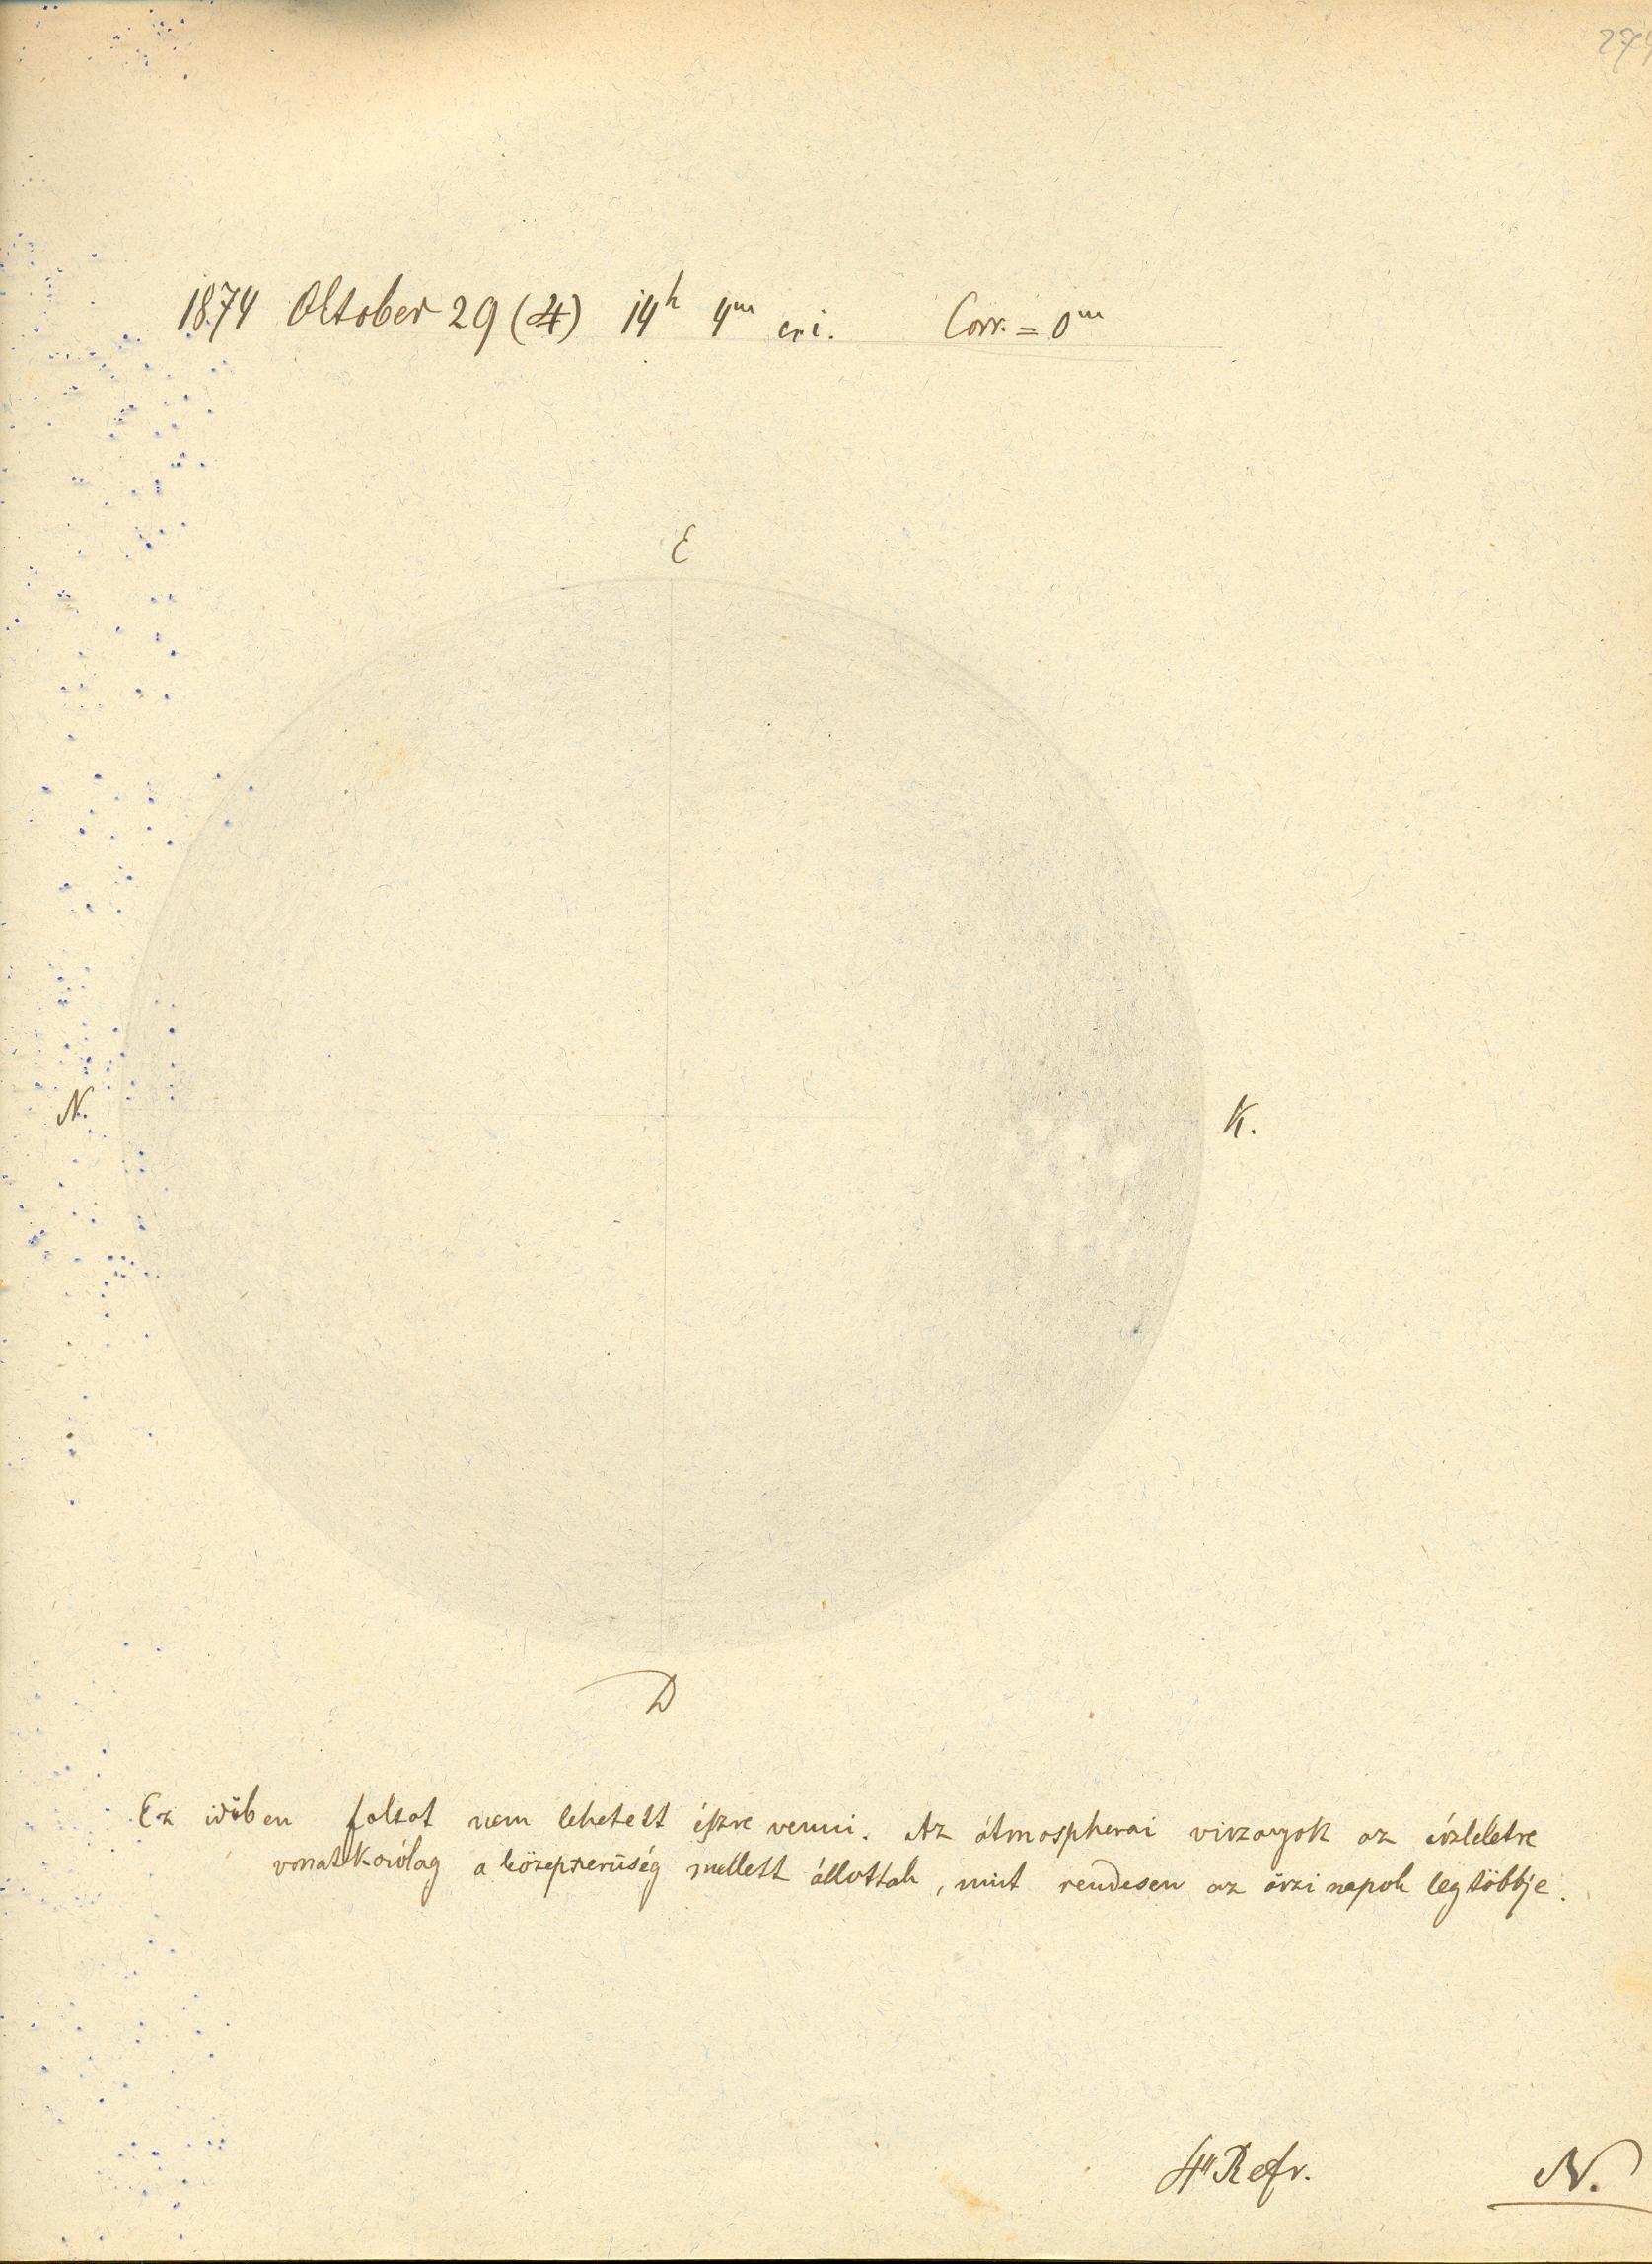 274
1874 Oktober 29 (♃) 14ʰ 4ᵐ cri. Corr. = 0ᵐ
E
N.
K.
D
Ez időben foltot nem lehetett észre venni. Az átmospherai viszonyok az észleletre
vonatkozólag a középszerűség mellett állottak, mint rendesen az őszi napok legtöbbje.
4" Refr. N.